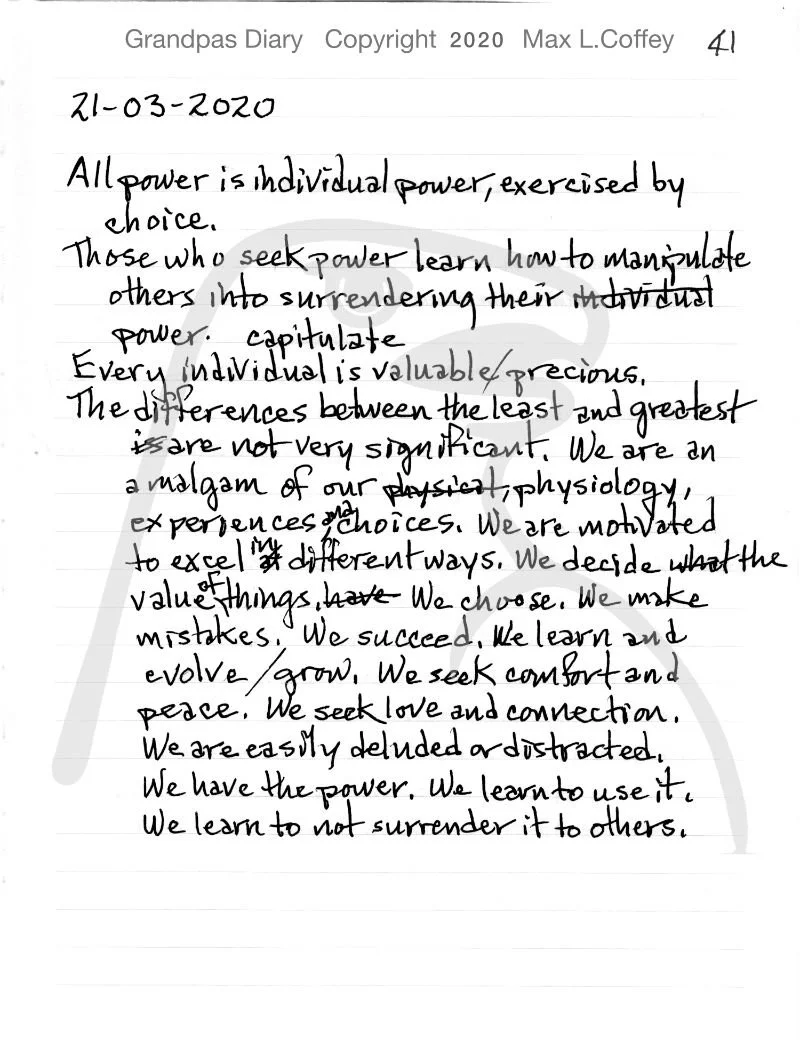 Grandpas Diary Copyright 2020 Max L.Coffey 41
21-03-2020
All power is individual power, exercised by
choice.
Those who seek power learn how to manipulate
others into surrendering their individual
power. capitulate
Every individual is valuable/precious.
The differences between the least and greatest
is are not very significant. We are an
amalgam of our physical, physiology,
experiences, and choices. We are motivated
to excel in different ways. We decide what the
value of things, have We choose. We make
mistakes. We succeed. We learn and
evolve/grow. We seek comfort and
peace. We seek love and connection.
We are easily deluded or distracted.
We have the power. We learn to use it.
We learn to not surrender it to others.